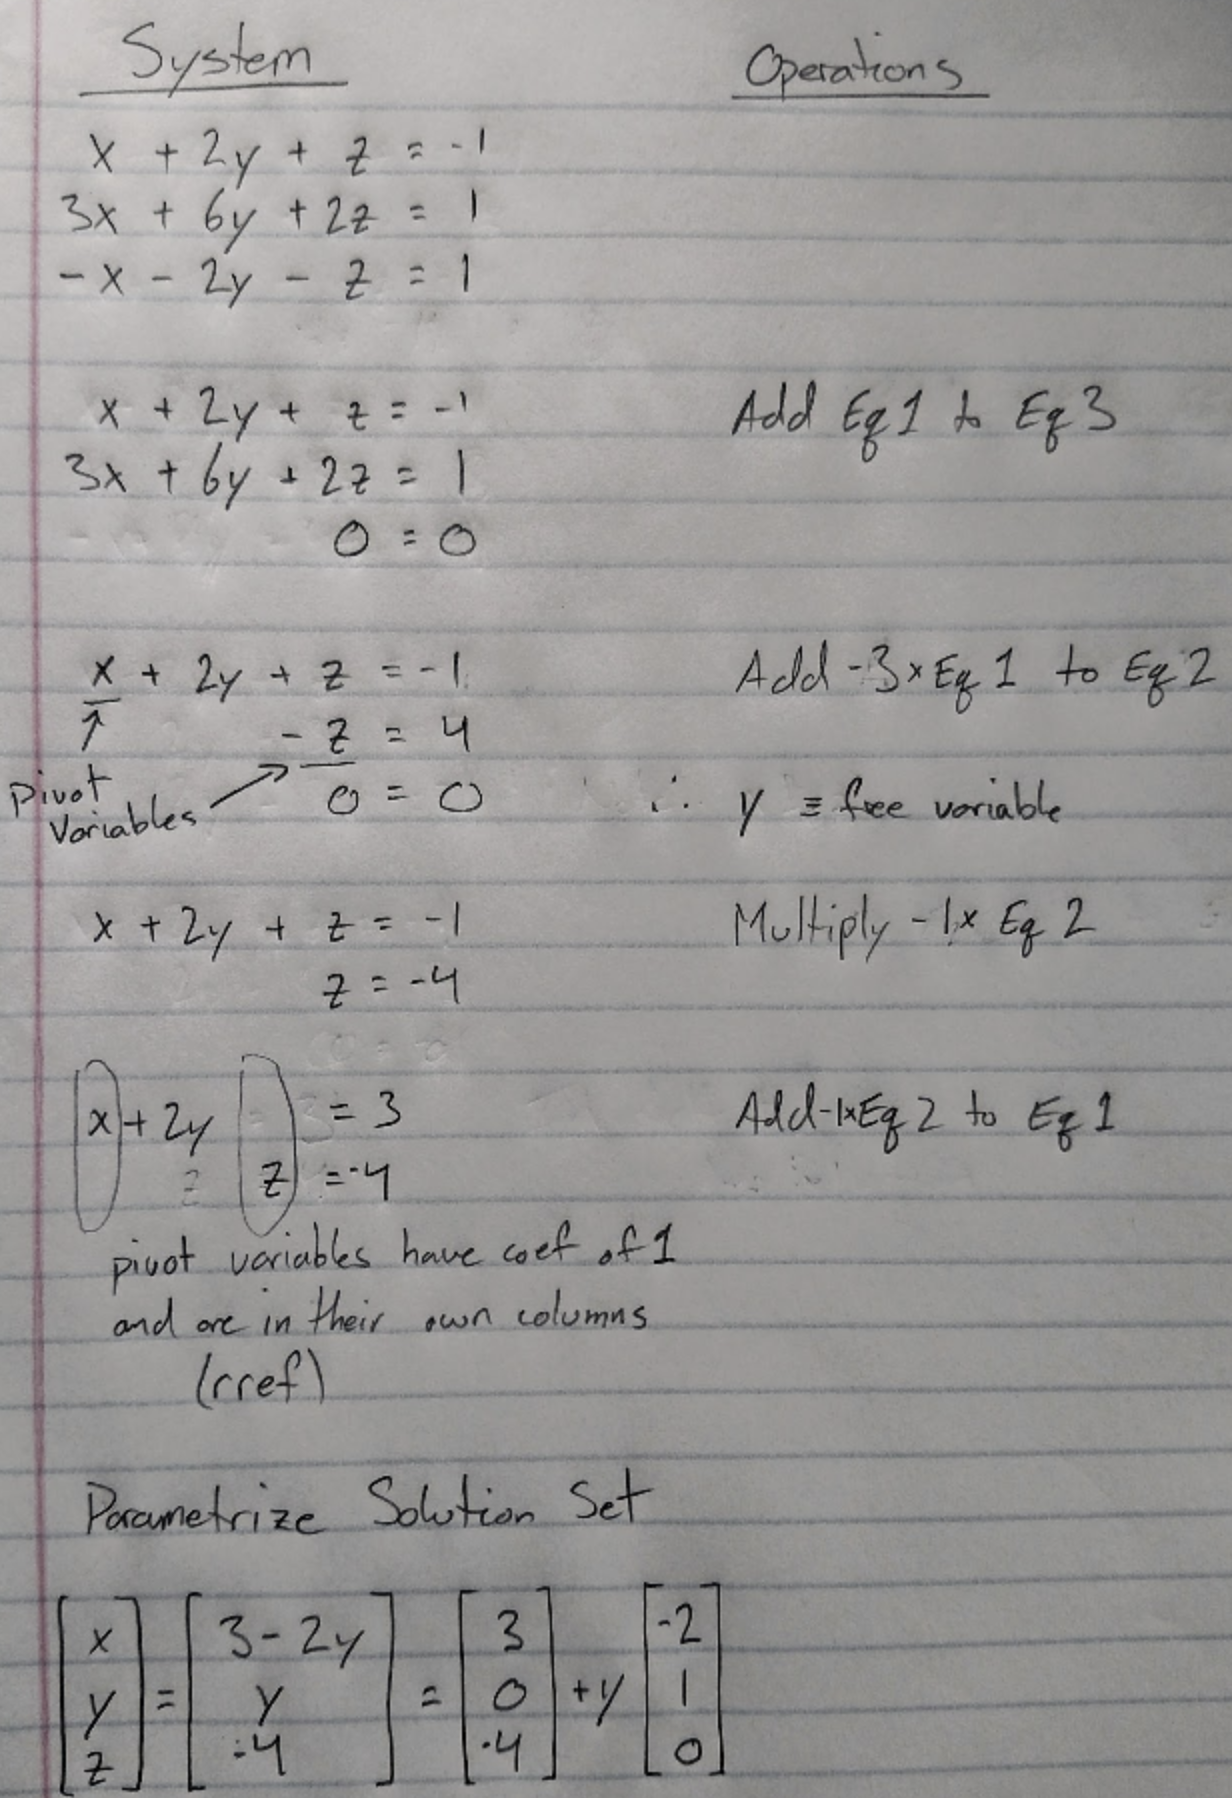 System Operations
x + 2y + z = -1
3x + 6y + 2z = 1
-x - 2y - z = 1
x + 2y + z = -1 Add Eq 1 to Eq 3
3x + 6y + 2z = 1
0 = 0
x + 2y + z = -1 Add -3 x Eq 1 to Eq 2
↑ - z = 4
pivot variables → 0 = 0 ∴ y ≡ free variable
x + 2y + z = -1 Multiply -1 x Eq 2
z = -4
x + 2y = 3 Add -1xEq 2 to Eq 1
z = -4
pivot variables have coef of 1
and are in their own columns
(rref)
Parametrize Solution Set
[x y z] = [3-2y y -4] = [3 0 -4] + y [-2 1 0]